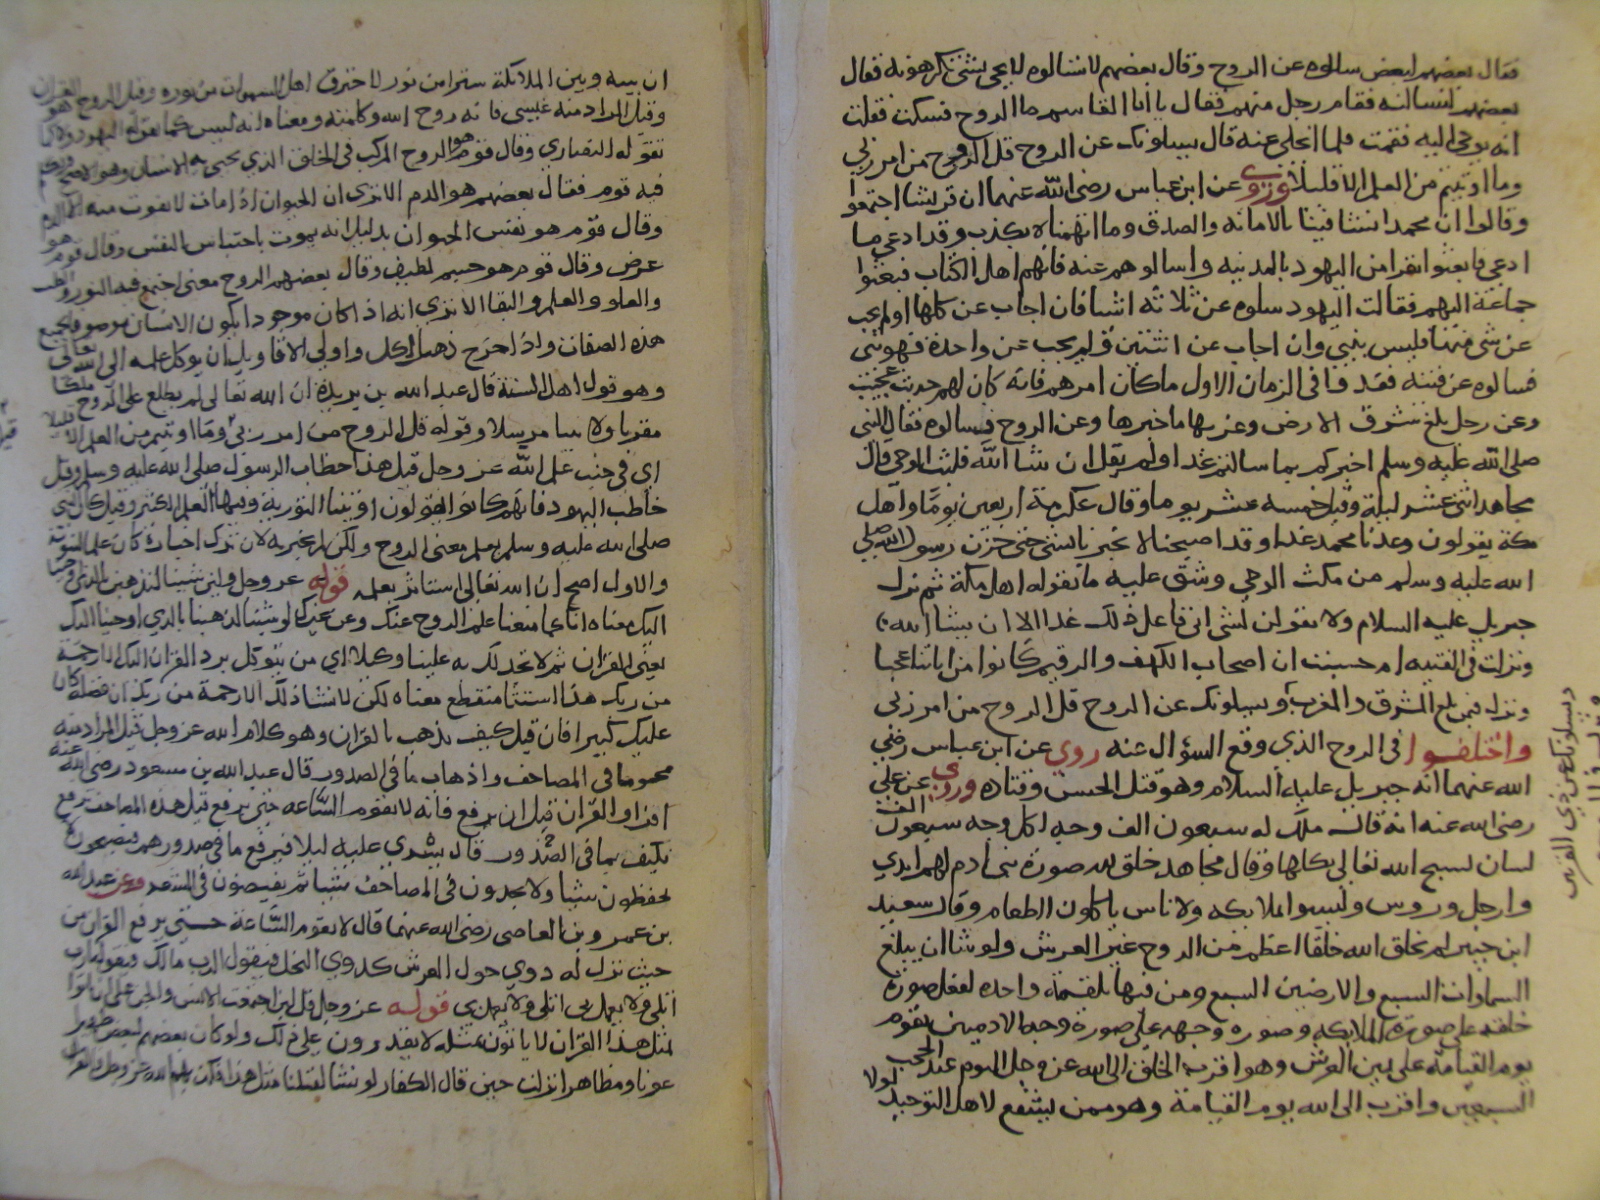 فقال بعضهم لبعض سالوه عن الروح وقال بعضهم لا تسالوه لا يجي بشي تكرهونه فقال
بعضهم لنسالنه فقام رجل منهم فقال يا ابا القاسم ما الروح فسكت فقلت
انه يوحى اليه فقمت فلما انجلى عنه قال يسيلونك عن الروح قل الروح من امر ربي
وما اوتيتم من العلم الا قليلا وروي عن ابن عباس رضى الله عنهما ان قريشا اجتمعوا
وقالوا ان محمدا نشا فينا بالامانه والصدق وما اتهمناه بكذب وقد ادعى ما
ادعى فابعثوا نفرا من اليهود بالمدينه واسالوهم عنه فانهم اهل الكتاب فبعثوا
جماعة اليهم فقالت اليهود سلوه عن ثلاثه اشيا فان اجاب عن كلها او لم يجب
عن شي منها فليس بنبي وان اجاب عن اثنتين ولم يجب عن واحدة فهو نبي
فسالوه عن فتية فقدوا فى الزمان الاول ما كان امرهم فانه كان لهم حديث عجيب
وعن رجل بلغ شرق الارض وغربها ما خبرها وعن الروح فسالوه فقال النبي
صلى الله عليه وسلم اخبركم بما سالتم غدا ولم يقل ان شا الله فلبث الوحى قال
مجاهد اثني عشر ليلة وقيل خمسه عشر يوما وقال عكرمة اربعين يوما واهل
مكة يقولون وعدنا محمد غدا وقد اصبحنا لا يخبرنا بشي حتى حزن رسول الله صلى
الله عليه وسلم من مكث الوحي وشق عليه ما يقوله اهل مكة ثم نزل
جبريل عليه السلام ولا تقولن لشي اني فاعل ذلك غدا الا ان يشا الله
ونزلت فى الفتيه ام حسبت ان اصحاب الكهف والرقيم كانوا من اياتنا عجبا
ونزل فيمن بلغ المشرق والمغرب ويسيلونك عن الروح قل الروح من امر ربي
ويسيلونك عن ذي القرنين
واختلفوا فى الروح الذي وقع السؤال عنه روي عن ابن عباس رضي
الله عنهما انه جبريل عليه السلام وهو قتل الحسن وقتاده وروي عن علي
رضى الله عنه انه قال ملك له سبعون الف وجه لكل وجه سبعون الف
لسان يسبح الله تعالى بكلها وقال مجاهد خلق على صورة بني ادم لهم ايدي
وارجل وروس وليسوا ملايكه ولا ناس ياكلون الطعام وقال سعيد
ابن جبير لم يخلق الله خلقا اعظم من الروح غير العرش ولو شا ان يبلغ
السماوات السبع والارضين السبع ومن فيها بلقمة واحده لفعل صورة
خلقه على صورة الملايكه وصوره وجهه على صورة وجه الادميين يقوم
يوم القيامه على يمين العرش وهو اقرب الخلق الى الله عز وجل اليوم عند الحجب
السبعين واقرب الى الله يوم القيامة وهو ممن يشفع لاهل التوحيد لولا
ان بينه وبين الملائكة سترا من نور لاحترق اهل السموات من نوره وقيل الروح هو القران
وقيل المراد منه عيسى فانه روح الله وكلمته ومعناه انه ليس كما يقوله اليهود ولا كما
تقوله النصاري وقال قوم هو الروح المركب فى الخلق الذي يحيى به الانسان وهو الاصح
فيه قوم فقال بعضهم هو الدم الا ترى ان الحيوان اذا مات لا يفوت منه الا الدم
وقال قوم هو نفس الحيوان بدليل انه يموت باحتباس النفس وقال قوم هو
عرض وقال قوم هو جسم لطيف وقال بعضهم الروح معنى اجتمع فيه النور والطيب
والعلو والعلم والبقا الا ترى انه اذا كان موجودا يكون الانسان موصوفا بجميع
هذه الصفات واذا خرج ذهب الكل واولي الاقاويل ان يوكل علمه الى الله تعالى
وهو قول اهل السنة قال عبد الله بن بريدة ان الله تعالى لم يطلع على الروح ملكا
مقربا ولا نبيا مرسلا وقوله قل الروح من امر ربي وما اوتيتم من العلم الا قليلا
اي فى جنب علم الله عز وجل قيل هذا خطاب الرسول صلى الله عليه وسلم وقيل
خاطب اليهود فانهم كانوا يقولون اوتينا التورية وفيها العلم الكثير وقيل كان النبي
صلى الله عليه وسلم يعلم معنى الروح ولكن لم يخبر به لان ترك اخباره كان علما لنبوته
والاول اصح ان الله تعالى استاثر بعلمه قوله عز وجل ولين شينا لنذهبن بالذي اوحينا
اليك معناه انا كما منعنا علم الروح عنك وعن غيرك لو شينا لذهبنا بالذي اوحينا اليك
يعني القران ثم لا تجد لك به علينا وكيلا اي من يتوكل برد القران اليك الا رحمة
من ربك هذا استثنا منقطع معناه لكن لا نشا ذلك الا رحمة من ربك ان فضله كان
عليك كبيرا فان قيل كيف يذهب بالقران وهو كلام الله عز وجل قيل المراد منه
محو ما فى المصاحف واذهاب ما فى الصدور قال عبد الله بن مسعود رضى الله عنه
اقراوا القران قبل ان يرفع فانه لا تقوم الساعه حتى يرفع قيل هذه المصاحف ترفع
فكيف بما فى الصدور قال يسري عليه ليلا فيرفع ما فى صدورهم فيصبحون لا
يحفظون شيا ولا يجدون فى المصاحف شيا ثم يفيضون فى الشعر وعن عبد الله
بن عمرو بن العاصى رضى الله عنهما قال لا تقوم الساعة حتى يرفع القران من
حيث نزل له دوي حول العرش كدوي النحل فيقول الرب مالك فيقول يا رب
اتلى ولا يعمل بي اتلى ولا يعمل بي قوله عز وجل قل لين اجتمعت الانس والجن على ان ياتوا
بمثل هذا القران لا ياتون بمثله لا يقدرون على ذلك ولو كان بعضهم لبعض ظهيرا
عونا ومظاهرا نزلت حين قال الكفار لو نشا لقلنا مثل هذا